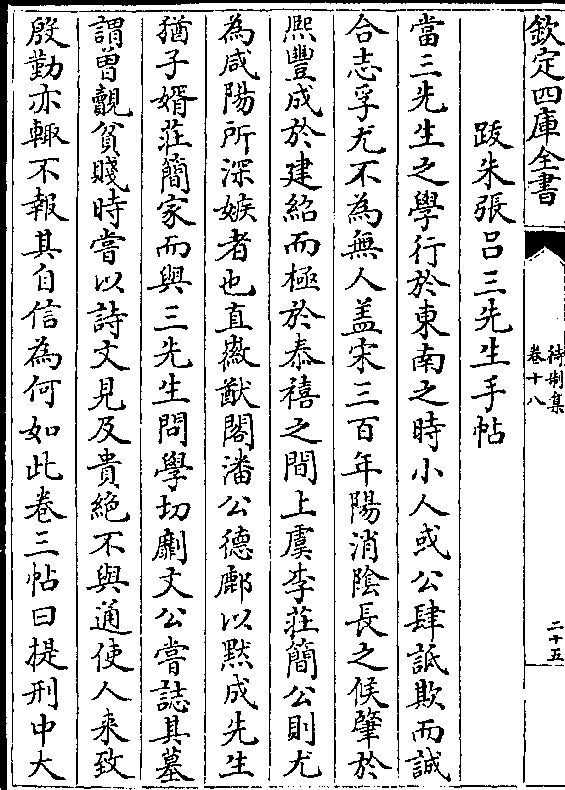 欽定四庫全書
待制集
卷十八
二十五
跋朱張吕三先生手帖
當三先生之學行於東南之時小人或公肆詆欺而誠
合志孚尤不為無人盖宋三百年陽消陰長之候肇於
熈豐成於建紹而極於泰禧之間上虞李荘簡公則尤
為咸陽所深嫉者也直㣲猷閣潘公德鄜以黙成先生
猶子婿荘簡家而與三先生問學切劘文公嘗誌其墓
謂曽覿貧賤時嘗以詩文見及貴絶不與通使人来致
殷勤亦輙不報其自信為何如此卷三帖曰提刑中大